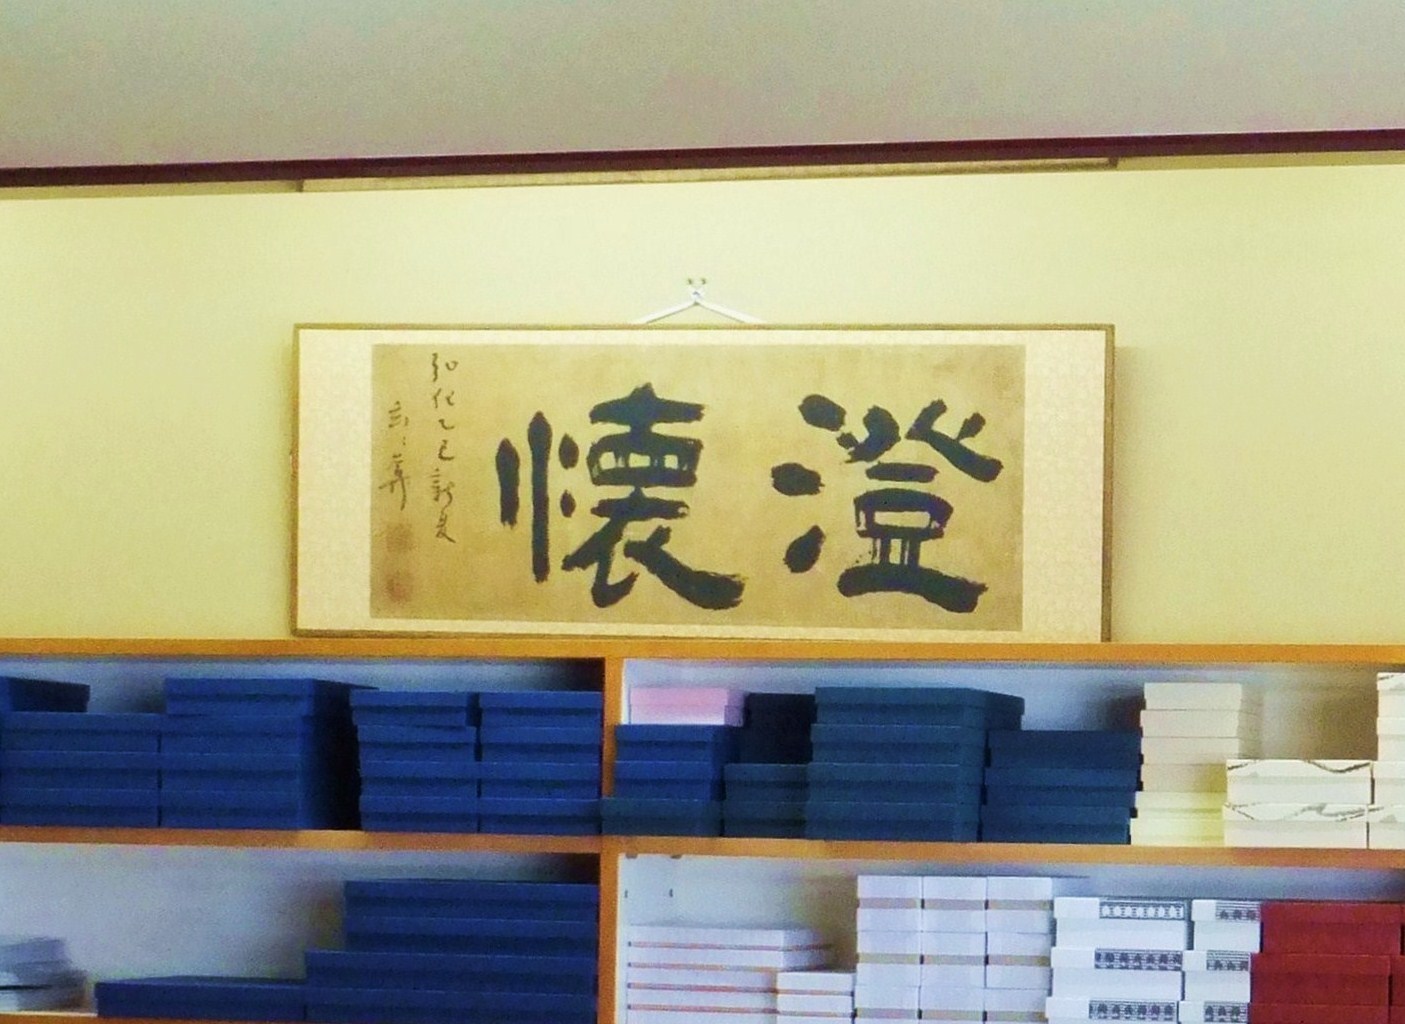 澄懐
弘化乙巳新夏